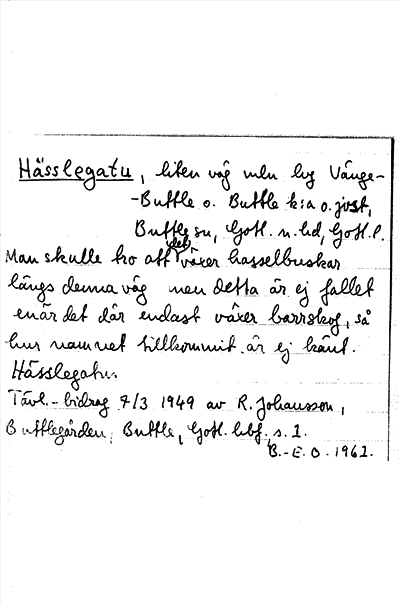 Hässlegatu, liten väg mln lvg Vänge-
-Buttle o. Buttle k:a o. jvst,
Buttle sn, Gotl. n. hd, Gotl. l.
Man skulle tro att det växer hasselbuskar
längs denna väg men detta är ej fallet
enär det där endast växer barrskog, så
hur namnet tillkommit är ej känt.
Hässlegatu.
Tävl.-bidrag 7/3 1949 av R. Johansson,
Buttlegården, Buttle, Gotl. s. 1.
B.-E. O. 1961.